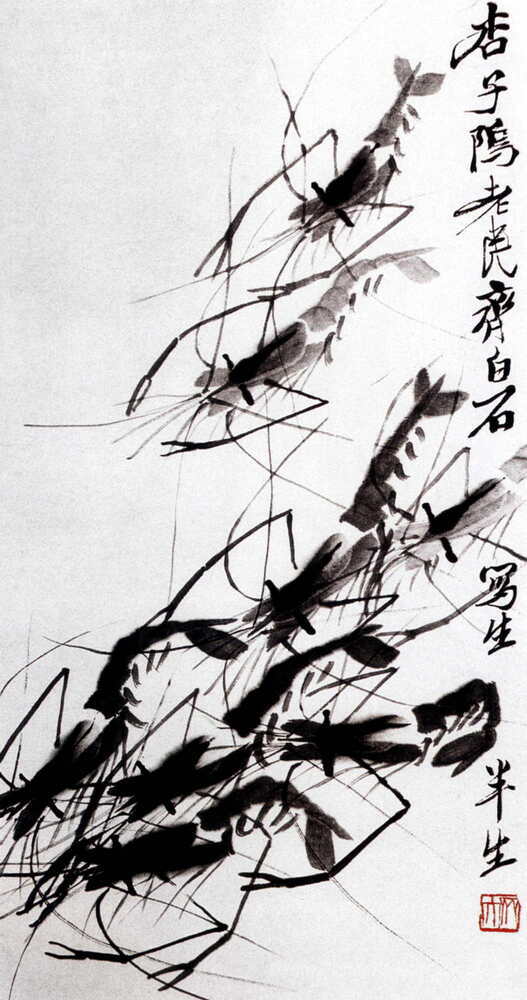 杏子隝老民齊白石
寫生
半生